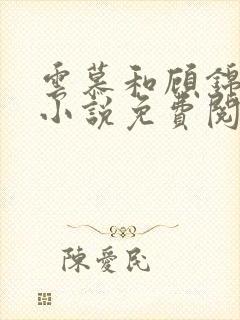 雲慕和顾錦
小說免費閱
陳愛民